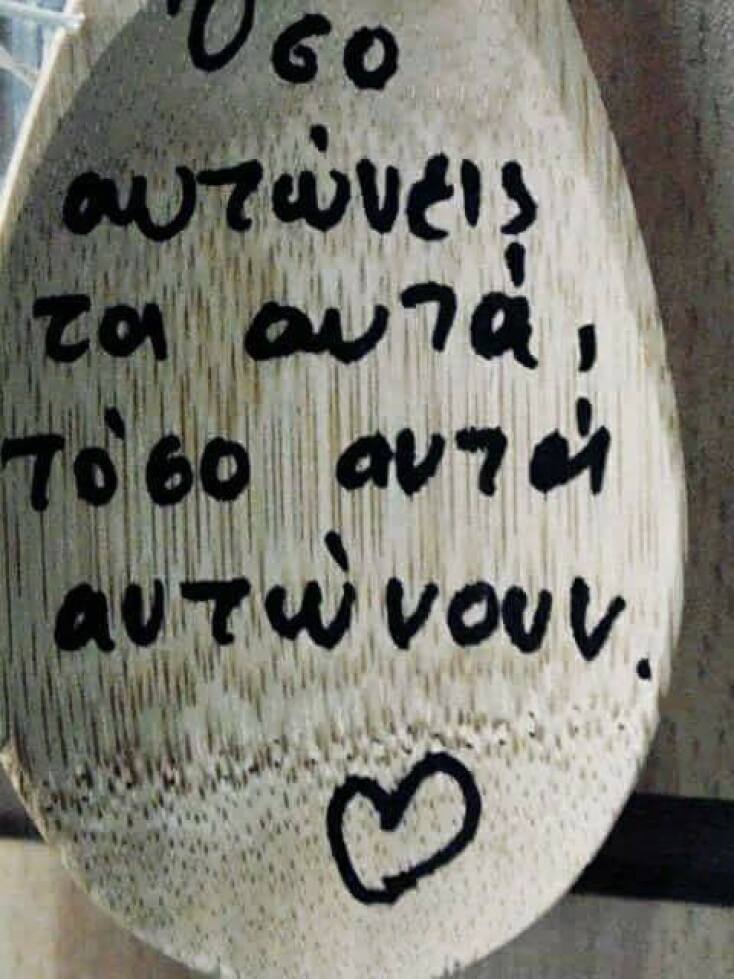 Όσο
αυτώνεις
τα αυτά,
τόσο αυτά
αυτώνουν.